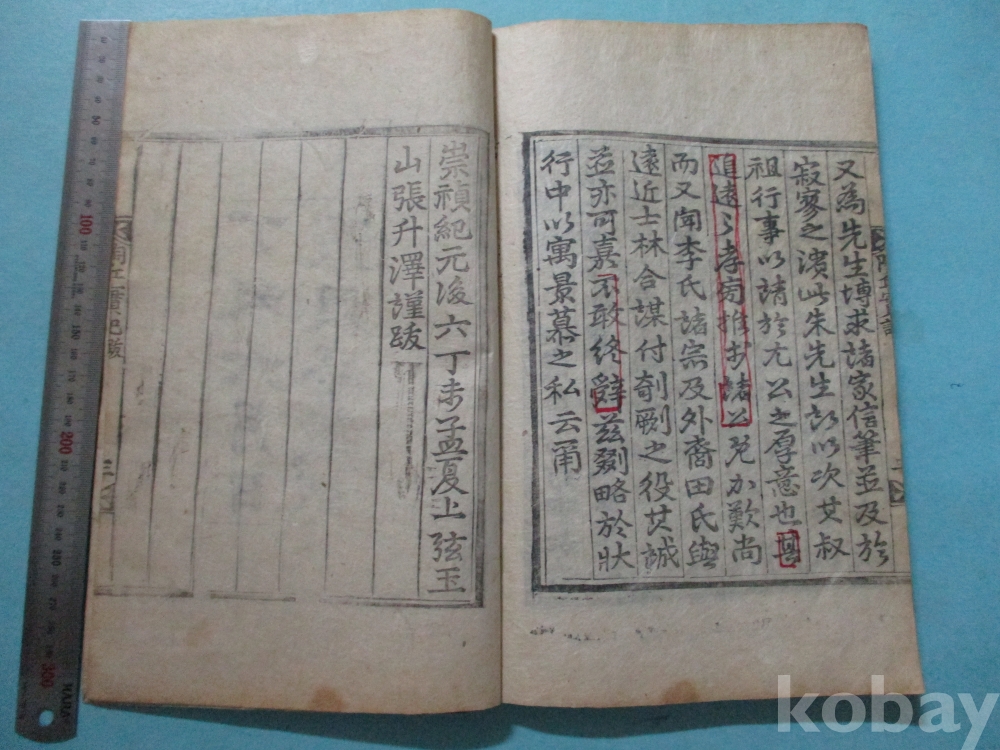 又為先生博求諸家信筆並及於
寂寥之濱此朱先生所以次其叔
祖行事以請於尤公之厚意也其
追遠之孝
諸公
加歎尚
而又聞李氏諸宗及外裔田氏與
遠近士林合謀付剞劂之役其誠
並亦可嘉不敢終辭玆
略於狀
行中以寓景慕之私云爾
崇禎紀元後六丁未孟夏上弦玉
山張升澤謹跋
100
150
200
300
kobay